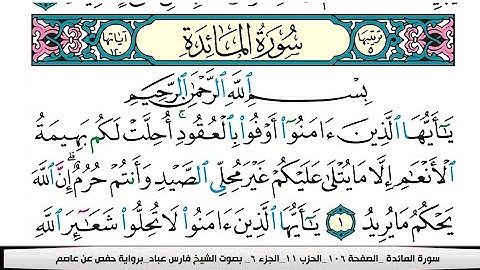 ترتيبها ٥ سُورَةُ المَائِدَةِ آياتها ١٢٠
بِسْمِ اللَّهِ الرَّحْمَٰنِ الرَّحِيمِ
يَا أَيُّهَا الَّذِينَ ءَامَنُوا أَوْفُوا بِالْعُقُودِ أُحِلَّتْ لَكُم بَهِيمَةُ
الْأَنْعَامِ إِلَّا مَا يُتْلَى عَلَيْكُمْ غَيْرَ مُحِلِّي الصَّيْدِ وَأَنتُمْ حُرُمٌ إِنَّ اللَّهَ
يَحْكُمُ مَا يُرِيدُ ١ يَا أَيُّهَا الَّذِينَ ءَامَنُوا لَا تُحِلُّوا شَعَائِرَ اللَّهِ
سورة المائدة _الصفحة ١٠٦_الحزب ١١_الجزء ٦_ بصوت الشيخ فارس عباد_برواية حفص عن عاصم